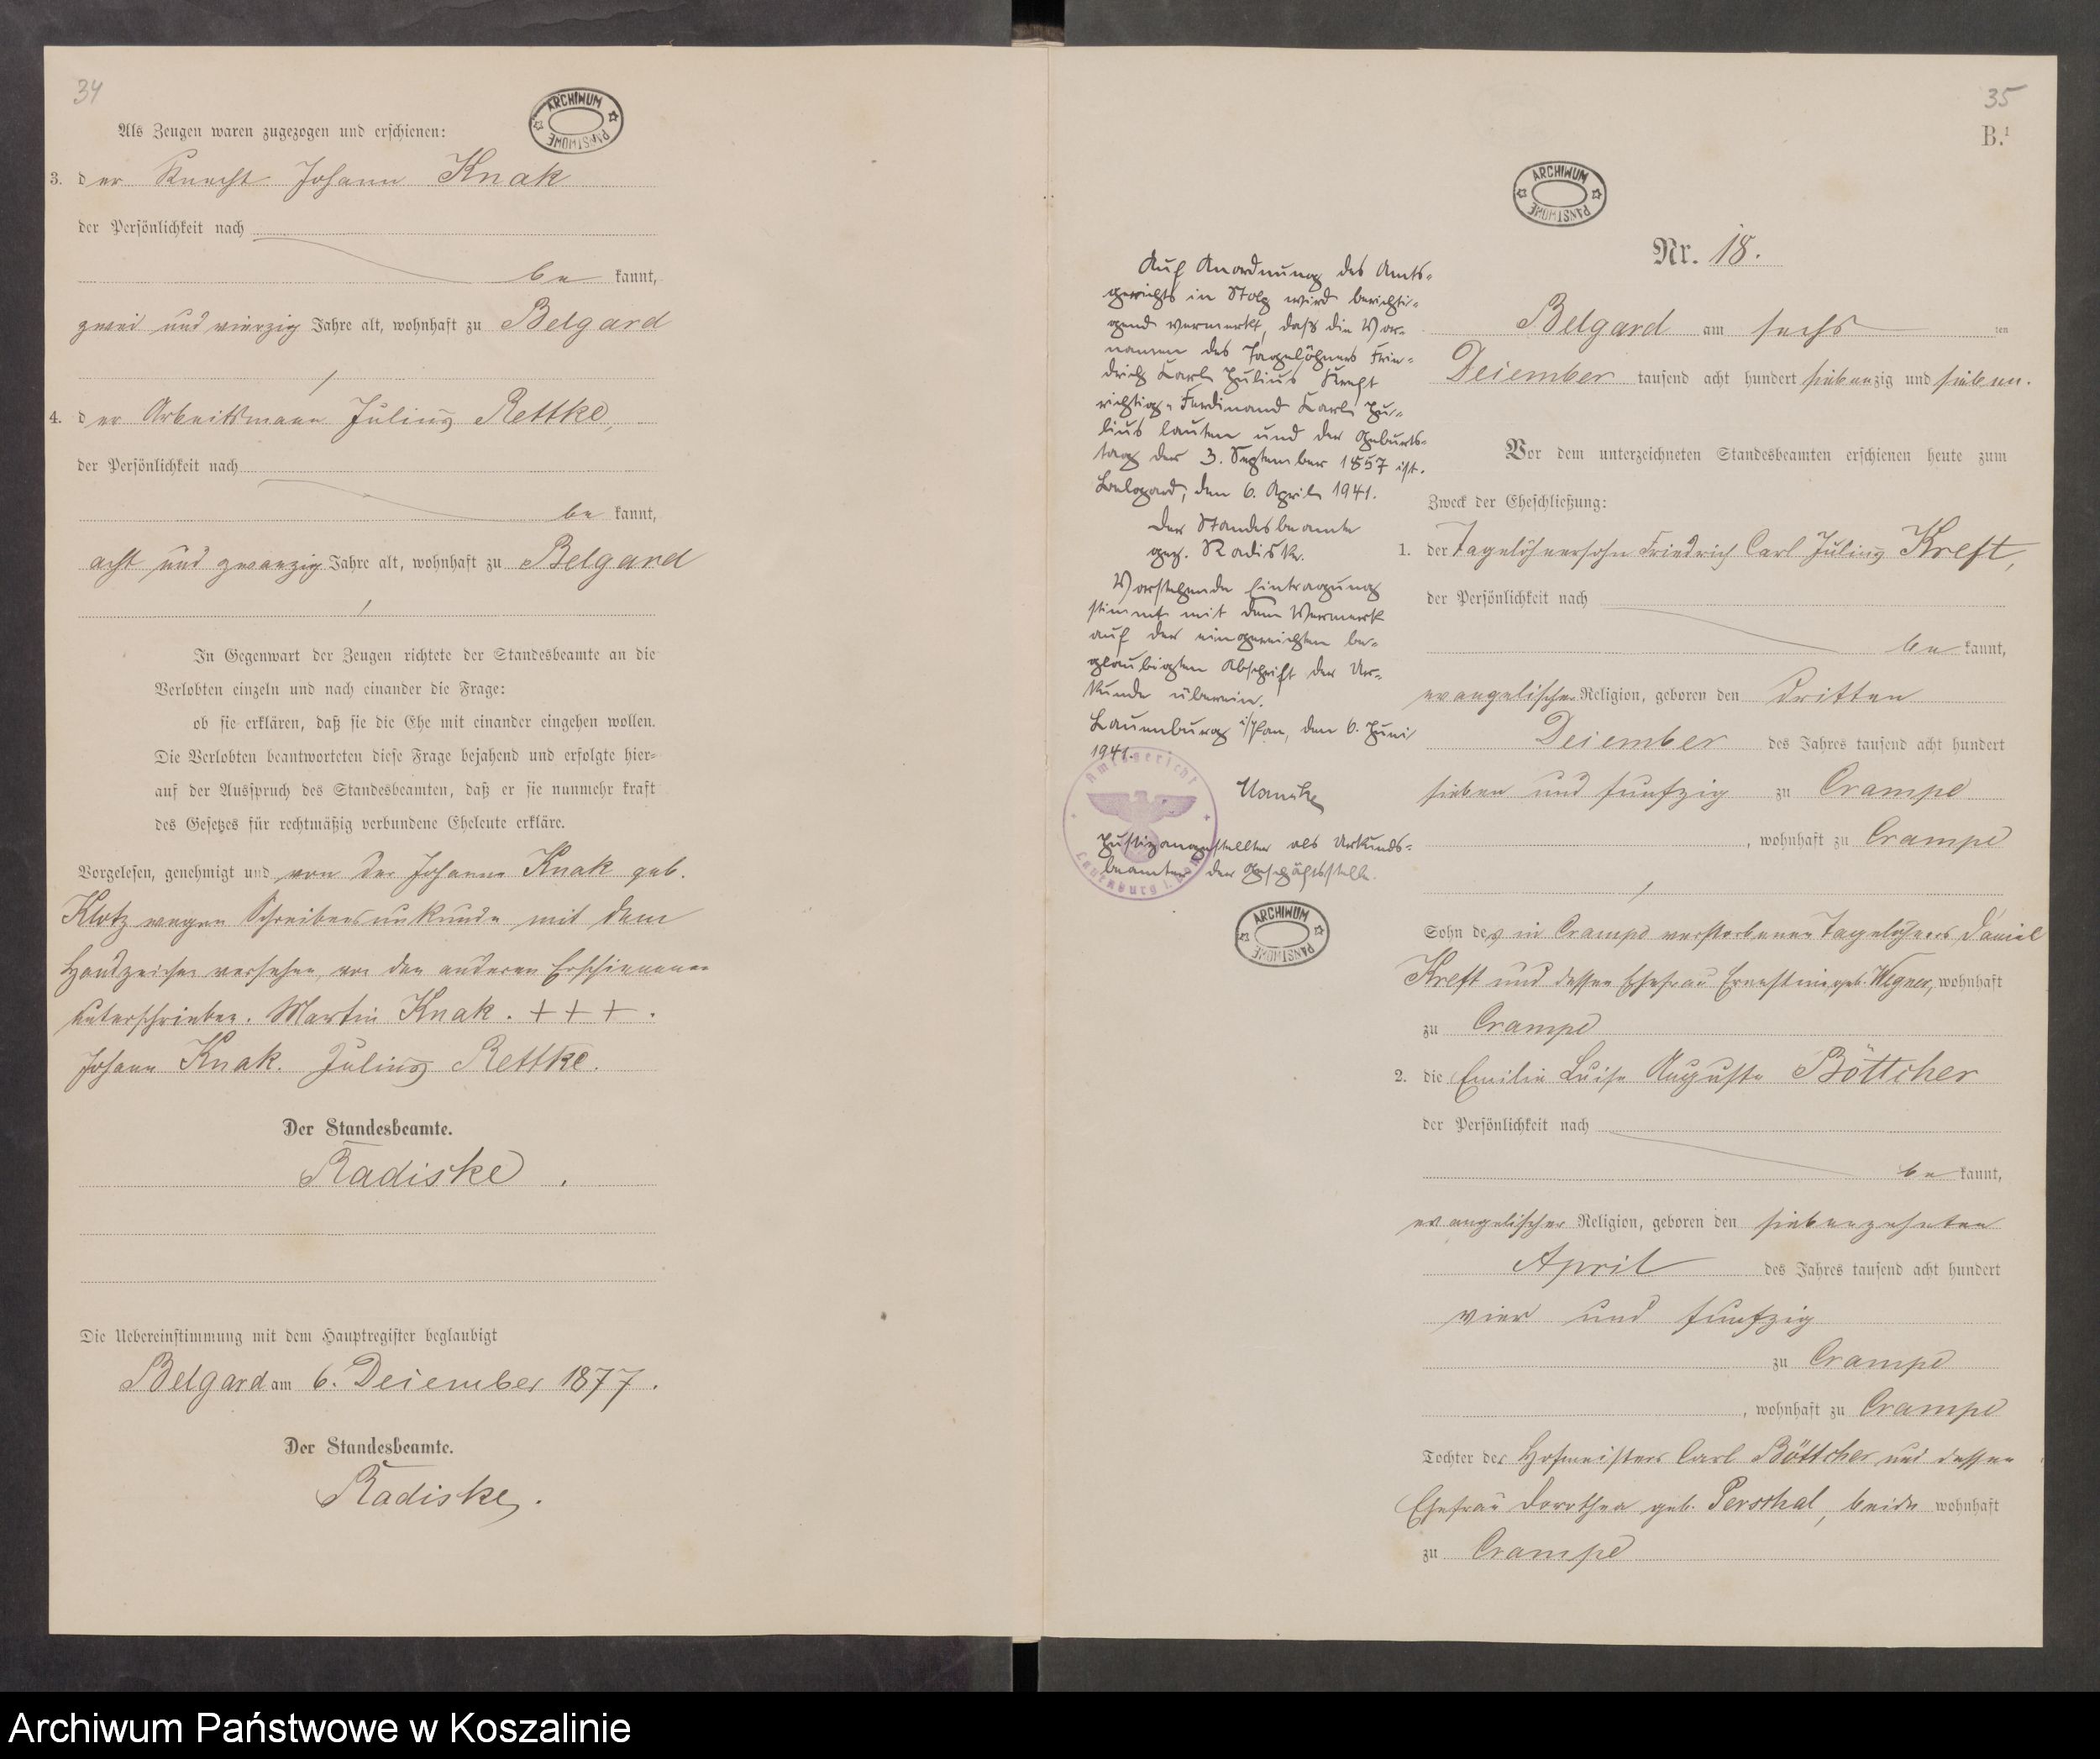 34
ARCHIWUM PAŃSTWOWE
Als Zeugen waren zugezogen und erschienen:
3. der Knecht Johann Knak
der Persönlichkeit nach
be kannt,
zwei und vierzig Jahre alt, wohnhaft zu Belgard
4. der Arbeitsmann Julius Rettke,
der Persönlichkeit nach
be kannt,
acht und zwanzig Jahre alt, wohnhaft zu Belgard
In Gegenwart der Zeugen richtete der Standesbeamte an die
Verlobten einzeln und nach einander die Frage:
ob sie erklären, daß sie die Ehe mit einander eingehen wollen.
Die Verlobten beantworteten diese Frage bejahend und erfolgte hier-
auf der Ausspruch des Standesbeamten, daß er sie nunmehr kraft
des Gesetzes für rechtmäßig verbundene Eheleute erkläre.
Vorgelesen, genehmigt und von der Johanne Knak geb.
Klotz wegen Schreibensunkunde mit dem
Handzeichen versehen, von den anderen Erschienenen
unterschrieben. Martin Knak. + + + .
Johann Knak. Julius Rettke.
Der Standesbeamte.
Radiske.
Die Uebereinstimmung mit dem Hauptregister beglaubigt
Belgard am 6. Deiember 1877.
Der Standesbeamte.
Radiske.
35
B.¹
ARCHIWUM PAŃSTWOWE
Nr. 18.
Belgard am sechs ten
Deiember tausend acht hundert siebenzig und sieben.
Vor dem unterzeichneten Standesbeamten erschienen heute zum
Zweck der Eheschließung:
1. der Tagelöhnersohn Friedrich Carl Julius Kreft,
der Persönlichkeit nach
be kannt,
evangelischer Religion, geboren den dritten
Deiember des Jahres tausend acht hundert
sieben und funfzig zu Crampe
, wohnhaft zu Crampe
Sohn des in Crampe verstorbenen Tagelöhners Daniel
Kreft und dessen Ehefrau Ernestine geb. Wegner, wohnhaft
zu Crampe
2. die Emilie Luise Auguste Böttcher
der Persönlichkeit nach
be kannt,
evangelischer Religion, geboren den siebenzehnten
April des Jahres tausend acht hundert
vier und funfzig
zu Crampe
, wohnhaft zu Crampe
Tochter des Hofmeisters Carl Böttcher und dessen
Ehefrau Dorothea geb. Persthal, beide wohnhaft
zu Crampe
Auf Anordnung des Amts-
gerichts in Stolp wird berichti-
gend vermerkt, daß die Vor-
namen des Tagelöhners Frie-
drich Karl Julius Kreft
richtig: Ferdinand Karl Ju-
lius lauten und der Geburts-
tag der 3. September 1857 ist.
Belgard, den 6. April 1941.
Der Standesbeamte
gez. Radiske.
Vorstehende Eintragung
stimmt mit dem Vermerk
auf der eingereichten be-
glaubigten Abschrift der Ur-
kunde überein.
Lauenburg i/Pom, den 6. Juni
1941.
Amtsgericht
Lauenburg i. Pom.
Justizangestellter als Urkunds-
beamter der Geschäftsstelle.
ARCHIWUM PAŃSTWOWE
Archiwum Państwowe w Koszalinie